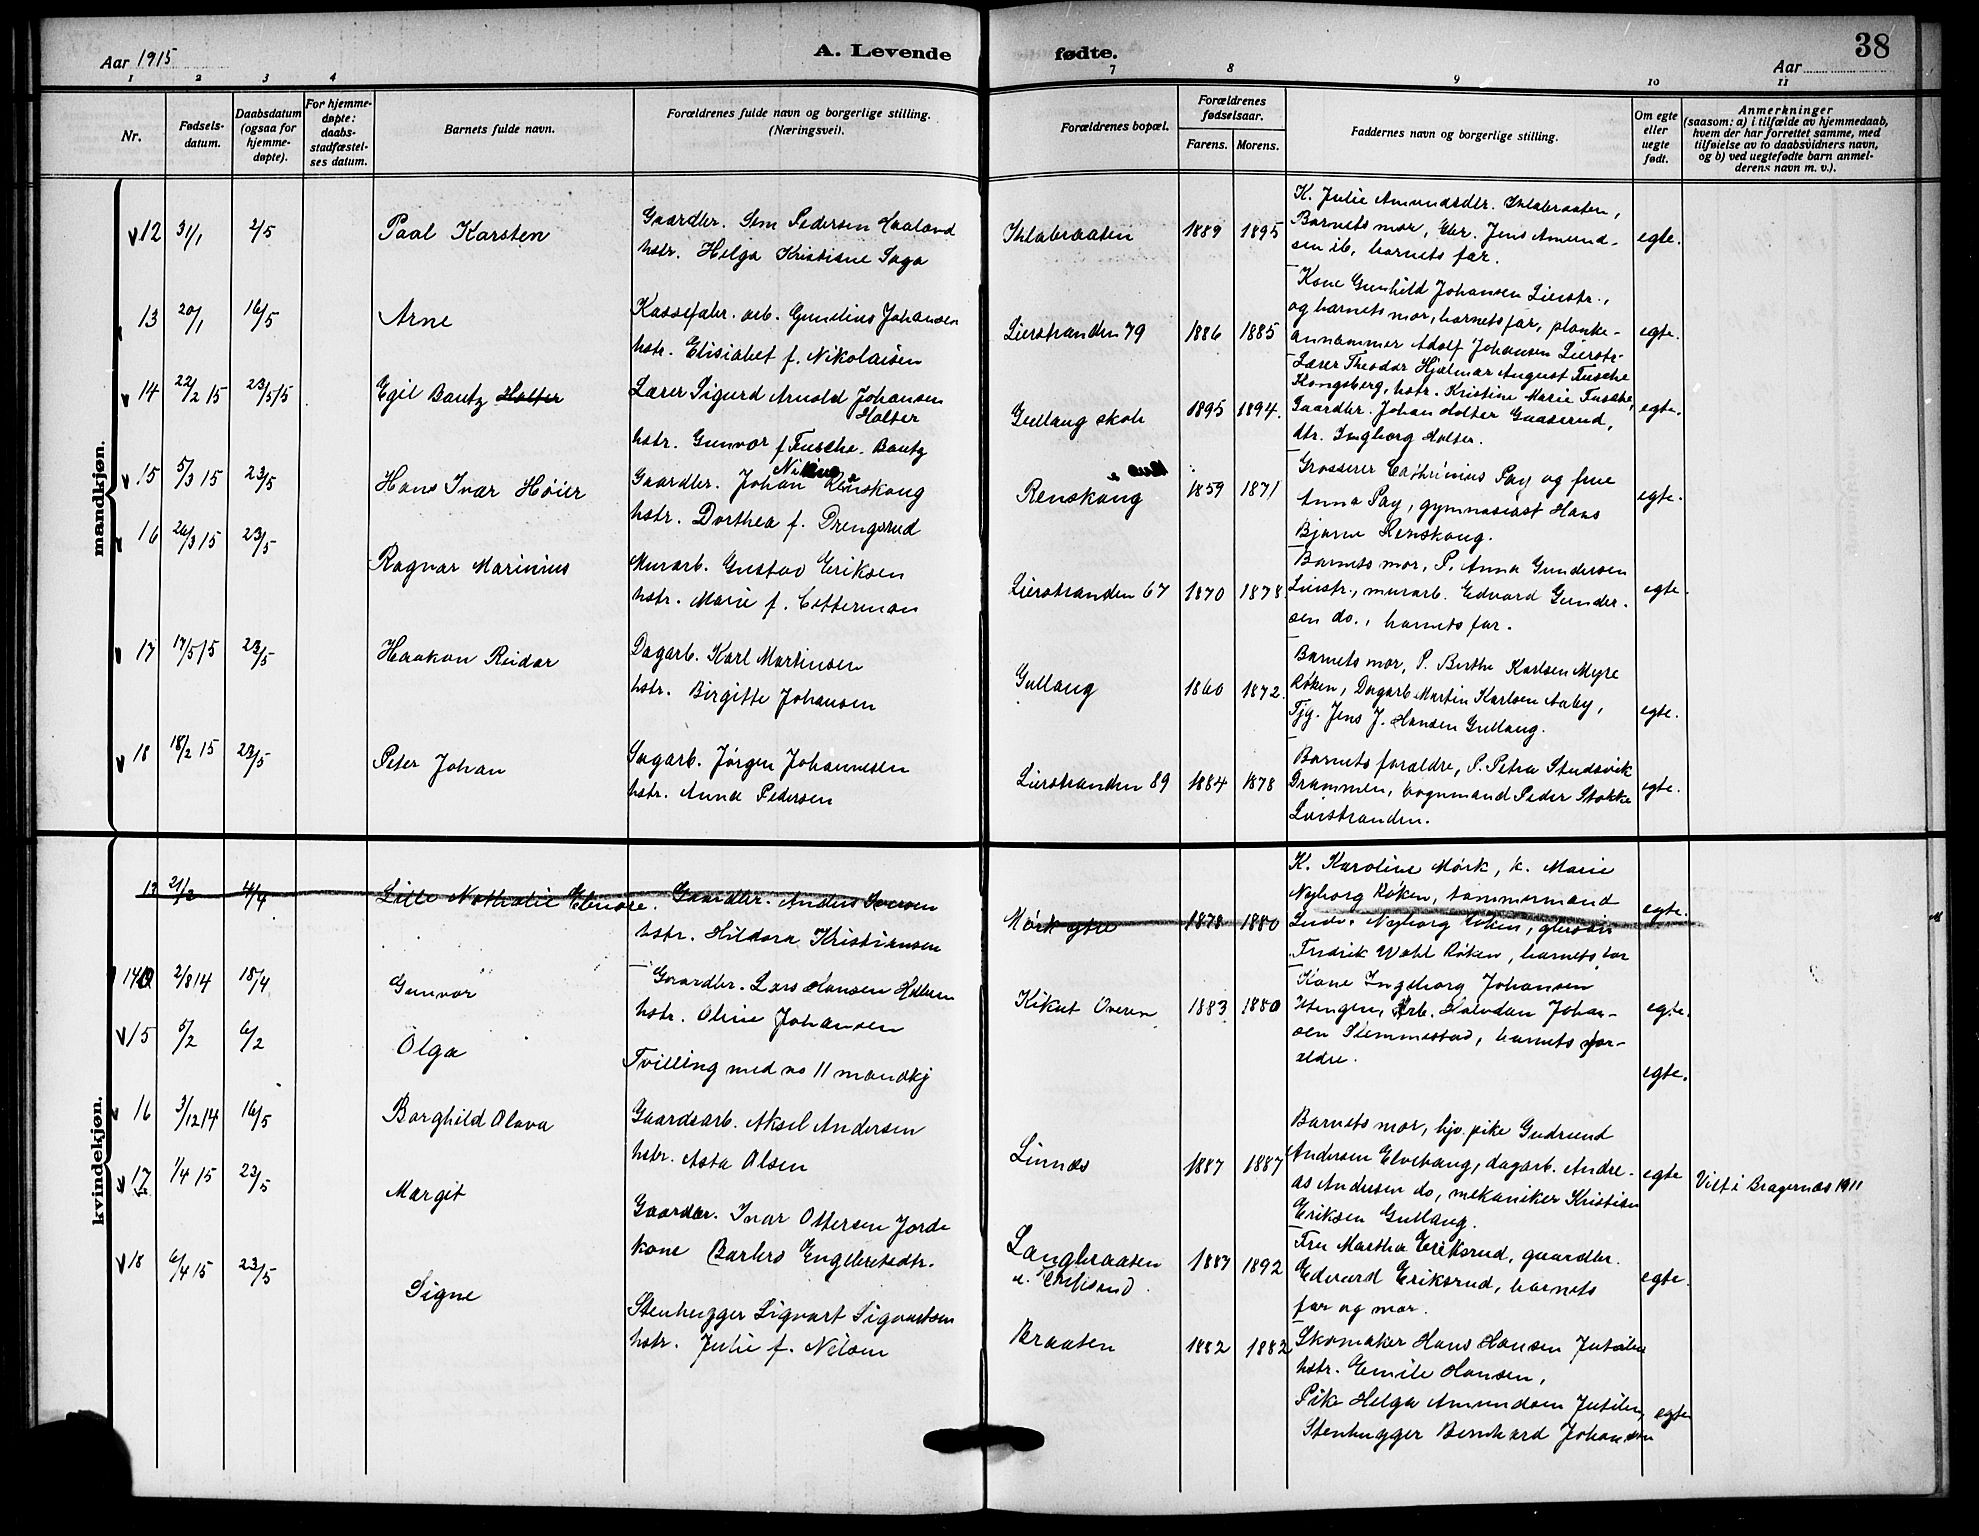 Aar 1915
A. Levende fødte.
38
Aar
1 2 3 4 7 8 9 10 11
Nr.
Fødsels-
datum.
Daabsdatum
(ogsaa for
hjemme-
døpte).
For hjemme-
døpte:
daabs-
stadfæstel-
ses datum.
Barnets fulde navn.
Forældrenes fulde navn og borgerlige stilling.
(Næringsvei).
Forældrenes bopæl.
Forældrenes
fødselsaar.
Farens. Morens.
Faddernes navn og borgerlige stilling.
Om egte
eller
uegte
født.
Anmerkninger
(saasom: a) i tilfælde av hjemmedaab,
hvem der har forrettet samme, med
tilføielse av to daabsvidners navn,
og b) ved uegtefødte barn anmel-
derens navn m. v.).
mandkjøn.
12 31/1 2/5 Paal Karsten
Gaardbr. Sem Pedersen Haaland
hstr. Helga Kristiane Saga
1889 1895
K. Julie Amundsdtr.
Barnets mor, Gbr. Jens Amund-
sen ib, barnets far.
egte.
13 20/1 16/5 Arne
Kassefabr. arb. Gundius Johansen
hstr. Elisabet f. Nikolaisen
Lierstranden 79 1886 1885
Kone Gunhild Johansen Lierstr.,
og barnets mor, barnets far, planke-
annammer Adolf Johansen Lierstr.
egte.
14 22/2 15 23/5 15 Egil Bautz Holter
Lærer Sigurd Arnold Johansen
Holter
hstr. Gunvor f. Fusche. Bautz
Gullaug skole 1895 1894.
Lærer Theodor Hjalmar August Fusche
Kongsberg, hstr. Kristine Marie Fusche,
Gaardbr. Johan Holter Gaaserud,
dtr. Ingborg Holter.
egte.
15 5/3 15 23/5 Hans Ivar Høier
Gaardbr. Johan Renskoug
hstr. Dorthea f. Drengsrud
Renskoug 1859 1871
Grosserer Cathrinius Pay og frue
Anna Pay, gymnasiast Hans
Bjarne Renskoug.
egte.
16 26/3 15 23/5 Ragnar Marinius
Murarb. Gustav Eriksen
hstr. Marie f. Cetterman
Lierstranden 67 1870 1878.
Barnets mor, P. Anna Gundersen
Lierstr., murarb. Edvard Gunder-
sen do., barnets far.
egte.
17 17/5 15 23/5 Haakon Reidar
Dagarb. Karl Martinsen
hstr. Birgitte Johansen
Gullaug 1860 1872.
Barnets mor, P. Berthe Karlsen Myre
Røken, Dagarb. Martin Karlsen Aaby,
Tjg. Jens J. Hansen Gullaug.
egte.
18 18/2 15 23/5 Peter Johan
Sagarb. Jørgen Johannesen
hstr. Anna Pedersen
Lierstranden 89 1884 1878
Barnets forældre, P. Petra Studsvik
Drammen, vognmand Peder Stokke
Lierstranden.
egte.
kvindekjøn.
13 21/2 4/4 Lille Nathalie Elenore.
Gaardbr. Anders Iversen
hstr. Hildora Kristiansen
Mørk ytre 1878 1880
K. Karoline Mørk, k. Marie
Nyborg Røken, tømmermand
Ludv. Nyborg Røken,
Fredrik Wahl Røken, barnets far
egte.
14 2/8 14 18/4 Gunvor
Gaardbr. Lars Hansen
hstr. Oline Johansen
Kikut Overen 1883 1880
Kone Ingeborg Johansen
arb. Halvdan Johan-
sen Slemmestad, barnets for-
ældre.
egte.
15 5/2 6/2 Olga
Tvilling med no 11 mandkj
egte.
16 3/12 14 16/5 Borghild Olava
Gaardsarb. Aksel Andersen
hstr. Asta Olsen
Linnæs 1887 1887
Barnets mor, hjv. pike Gudrund
Andersen Elvehaug, dagarb. Andre-
as Andersen do, mekaniker Kristian
Eriksen Gullaug.
egte
Viet i Bragernæs 1911
17 1/4 15 23/5 Margit
Gaardbr. Ivar Ottersen Jorde
kone Barbro Engebretsdtr.
Langbraaten
1887 1892
Fru Martha Eriksrud, gaardbr.
Edvard Eriksrud, barnets
far og mor.
egte.
18 6/4 15 23/5 Signe
Stenhugger Sigvart Sigvartsen
hstr. Julie f. Nelsen
Braaten 1882 1882
Skomaker Hans Hansen Jutilen
hstr. Emile Hansen,
Pike Helga Amundsen Jutilen,
Stenhugger Bernhard Johansen
egte